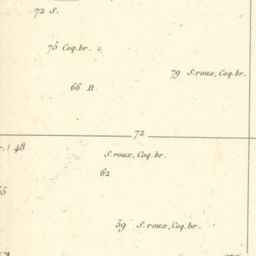 72 S.
75 Coq. br. c.
79 S. roux, Coq. br.
66 R.
72
48
S. roux, Coq. br.
62
59 S. roux, Coq. br.